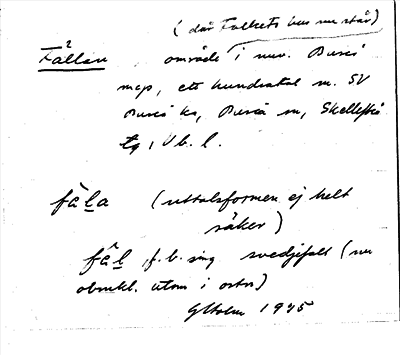 (där Folkets hus nu står)
2
Fållan område i nuv. Bureå
map, ett hundratal m. SV
Bureå ks, Bureå sn, Skellefteå
tg, Vb. l.
fâla (uttalsformen ej helt
säker)
fâl, f. b. sing svedjefall (nu
obrukl. utom i ortn)
GHolm 1945